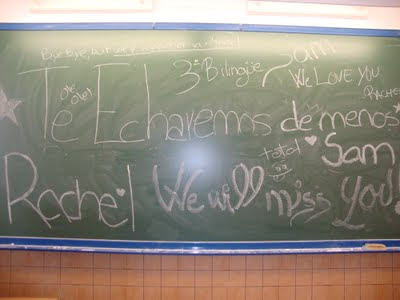 3º Bilingüe
Sam
We Love you
Rachel
ole
ole!
Te Echaremos de menos
total
Sam
Rachel We will miss you!